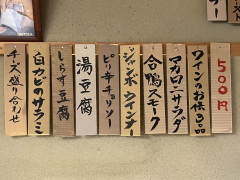 500円
ワインのお伴の品
マカロニサラダ
合鴨スモーク
ジャンボウインナー
ピリ辛チョリソー
湯豆腐
しらす豆腐
白カビのサラミ
チーズ盛り合わせ